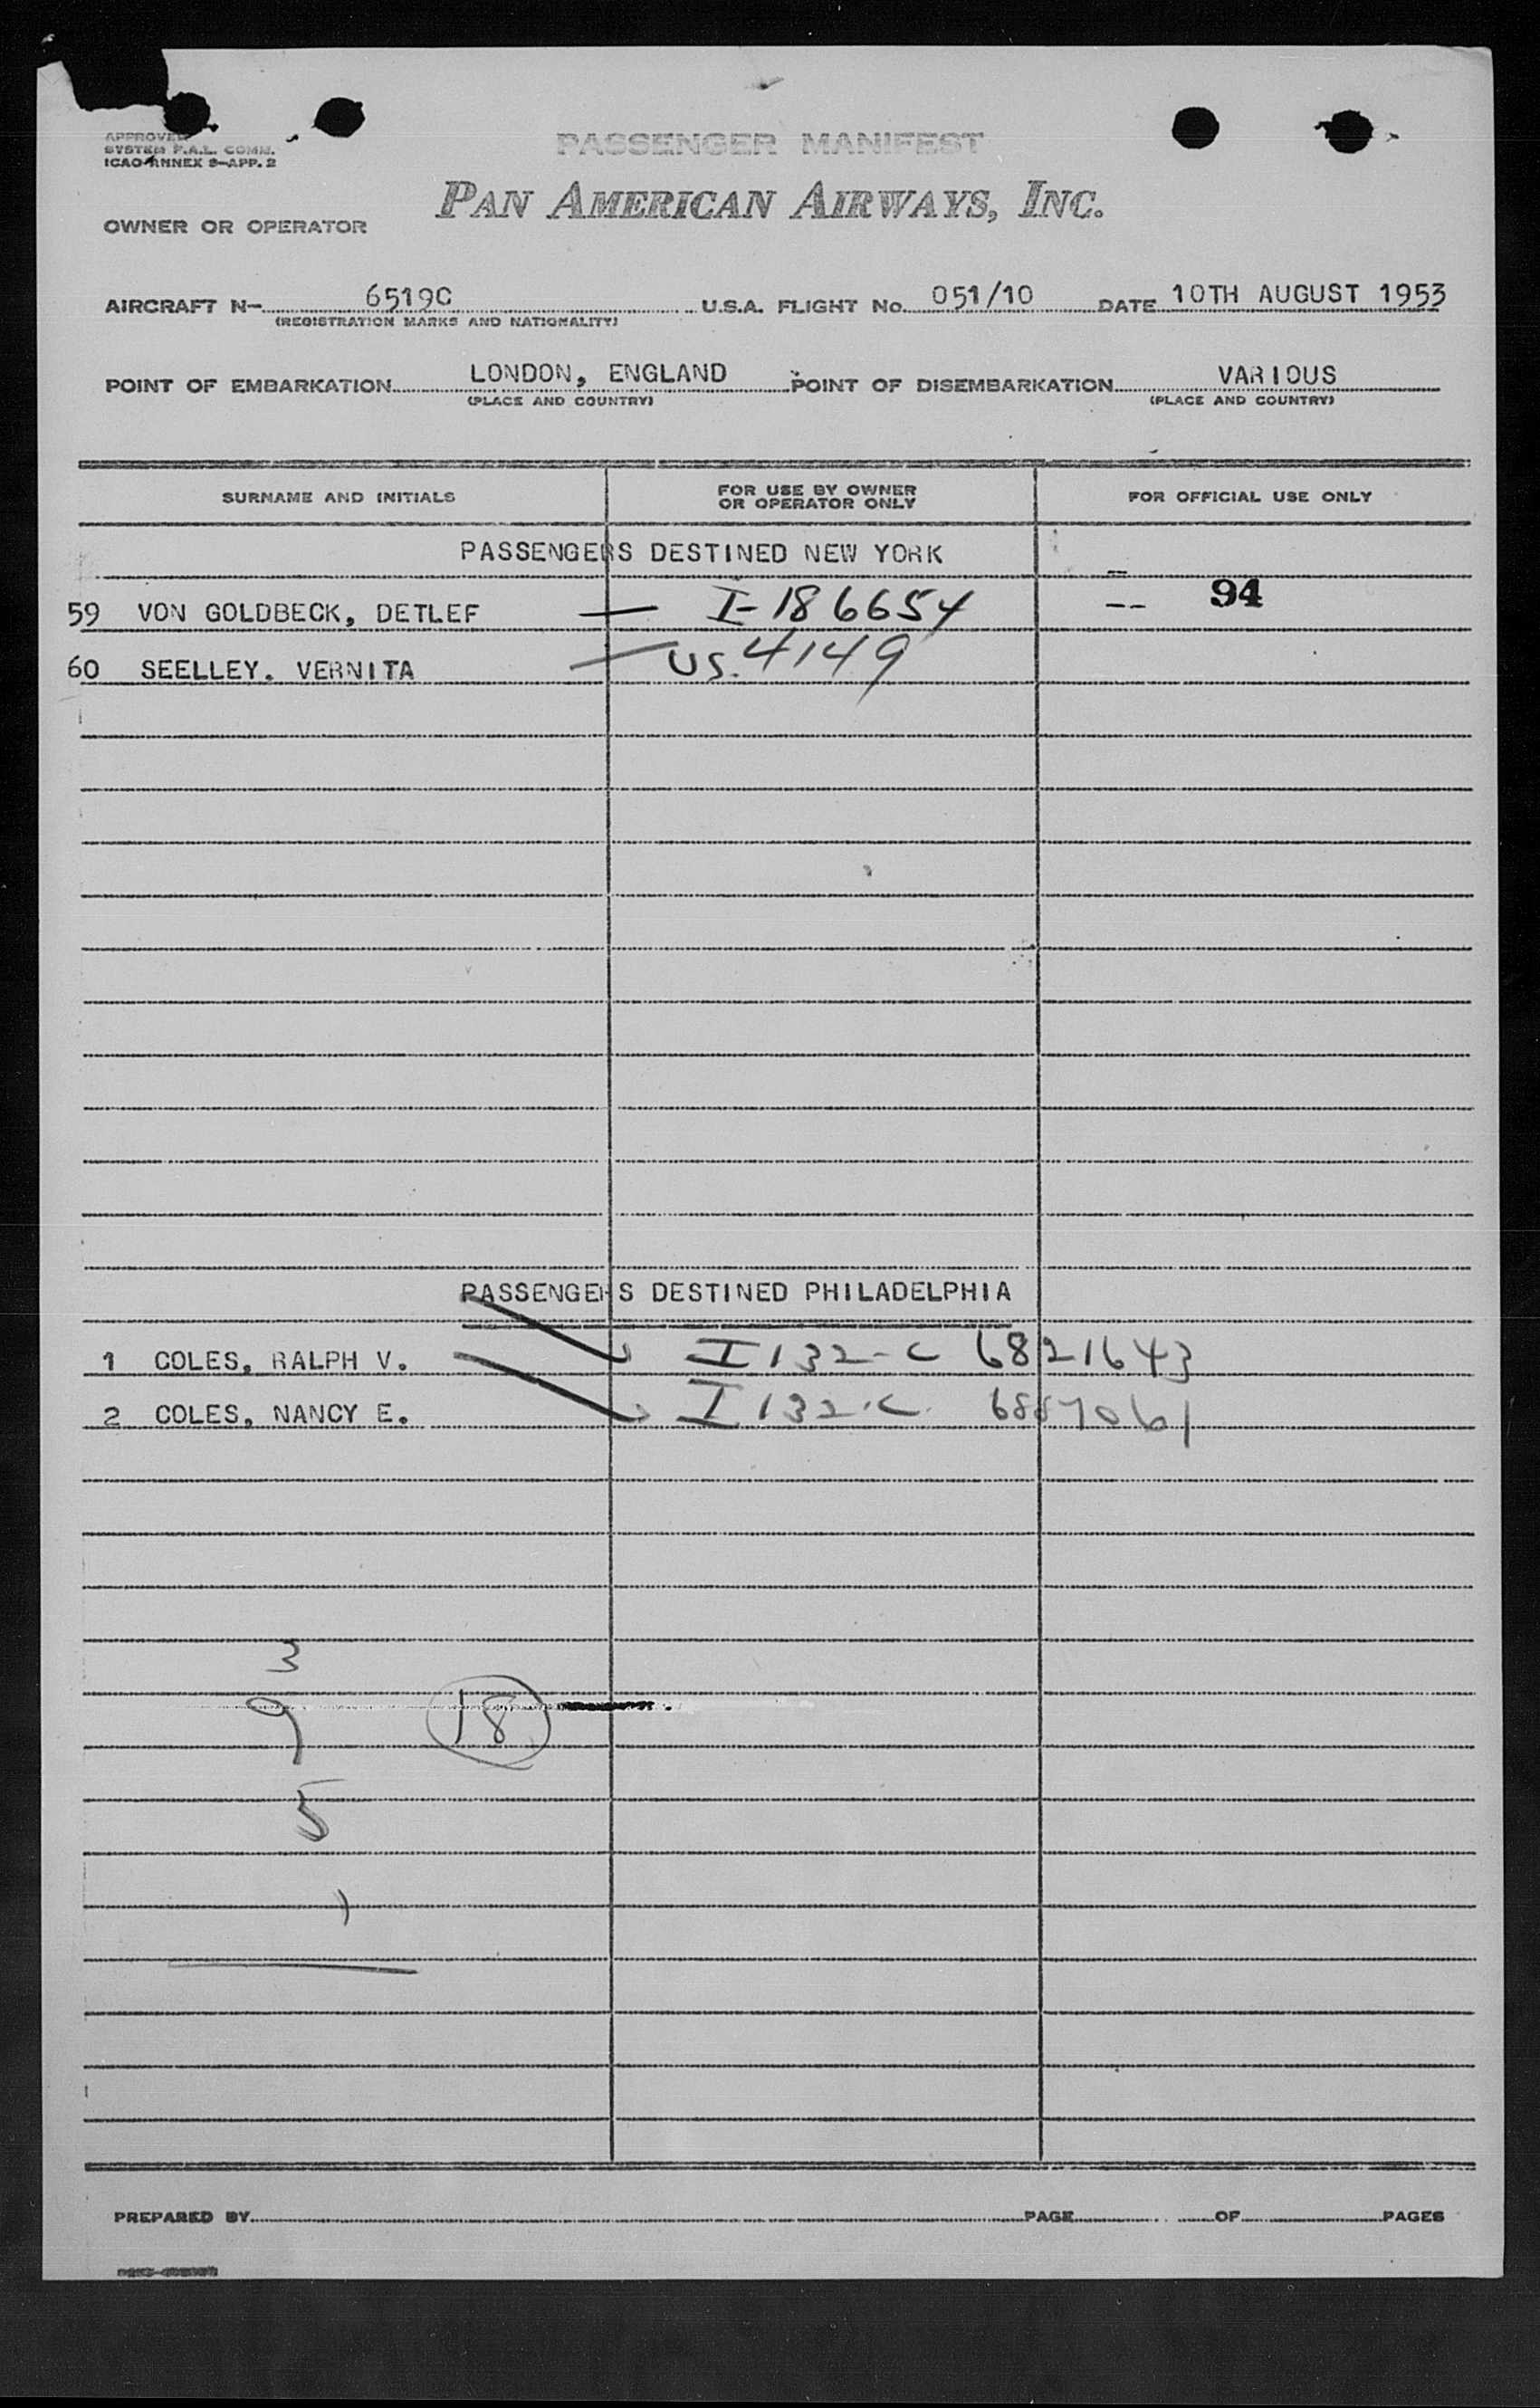 APPROVED
SYSTEM F.A.L. COMM.
ICAO ANNEX 9-APP. 2
PASSENGER MANIFEST
PAN AMERICAN AIRWAYS, INC.
OWNER OR OPERATOR
AIRCRAFT N- 6519C U.S.A. FLIGHT No. 051/10 DATE 10TH AUGUST 1953
(REGISTRATION MARKS AND NATIONALITY)
POINT OF EMBARKATION LONDON, ENGLAND POINT OF DISEMBARKATION VARIOUS
(PLACE AND COUNTRY) (PLACE AND COUNTRY)
SURNAME AND INITIALS FOR USE BY OWNER OR OPERATOR ONLY FOR OFFICIAL USE ONLY
PASSENGERS DESTINED NEW YORK
59 VON GOLDBECK, DETLEF — I-186654 -- 94
60 SEELLEY. VERNITA — US. 4149
PASSENGERS DESTINED PHILADELPHIA
1 COLES, RALPH V. I 132-C 6821643
2 COLES, NANCY E. I 132-C 6887061
3
9 18
5
1
PREPARED BY PAGE OF PAGES